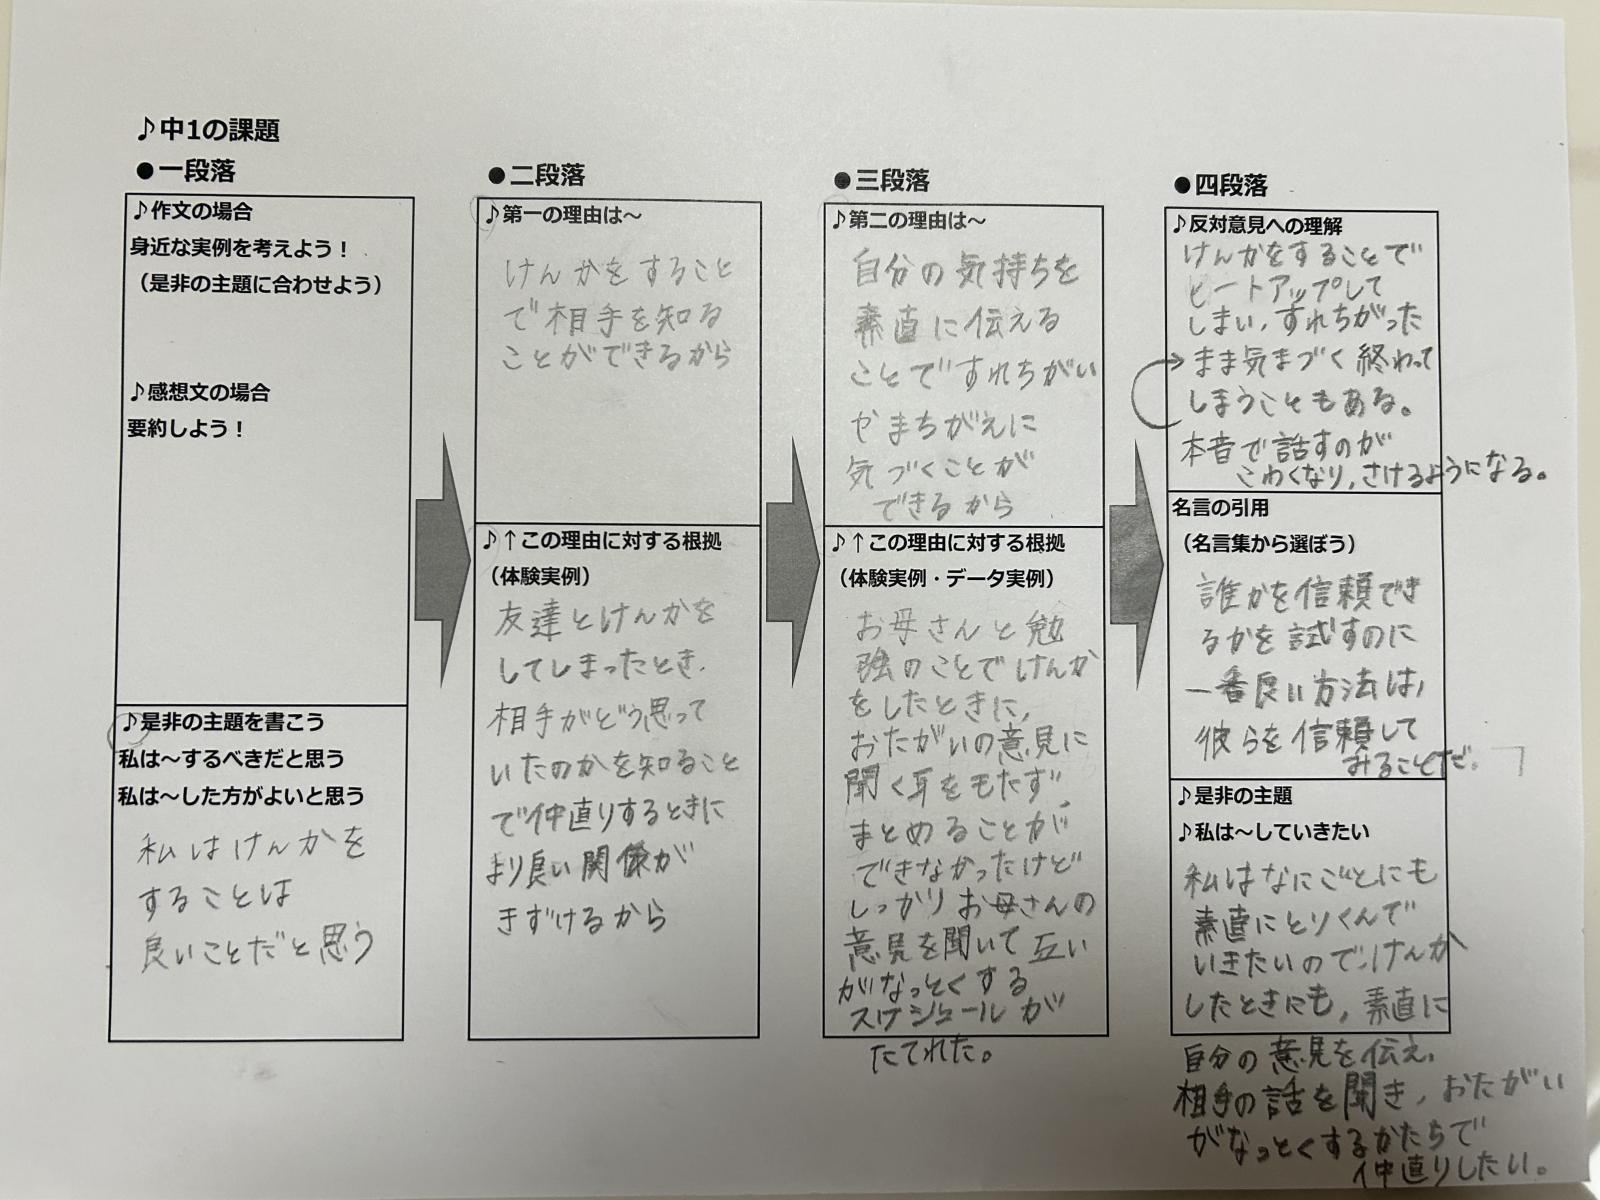 ♪中1の課題
●一段落
♪作文の場合
身近な実例を考えよう！
（是非の主題に合わせよう）
♪感想文の場合
要約しよう！
♪是非の主題を書こう
私は～するべきだと思う
私は～した方がよいと思う
私はけんかを
することは
良いことだと思う
●二段落
♪第一の理由は～
けんかをすること
で相手を知る
ことができるから
♪↑この理由に対する根拠
（体験実例）
友達とけんかを
してしまったとき、
相手がどう思って
いたのかを知ること
で仲直りするときに
より良い関係が
きずけるから
●三段落
♪第二の理由は～
自分の気持ちを
素直に伝える
ことですれちがい
やまちがえに
気づくことが
できるから
♪↑この理由に対する根拠
（体験実例・データ実例）
お母さんと勉
強のことでけんか
をしたときに、
おたがいの意見に
聞く耳をもたず、
まとめることが
できなかったけど
しっかりお母さんの
意見を聞いて互い
がなっとくする
スケジュールが
たてれた。
●四段落
♪反対意見への理解
けんかをすることで
ヒートアップして
しまい、すれちがった
まま気まづく終わって
しまうこともある。
本音で話すのが
こわくなり、さけるようになる。
名言の引用
（名言集から選ぼう）
誰かを信頼でき
るかを試すのに
一番良い方法は、
彼らを信頼して
みることだ。」
♪是非の主題
♪私は～していきたい
私はなにごとにも
素直にとりくんで
いきたいので、けんか
したときにも、素直に
自分の意見を伝え、
相手の話を聞き、おたがい
がなっとくするかたちで
仲直りしたい。